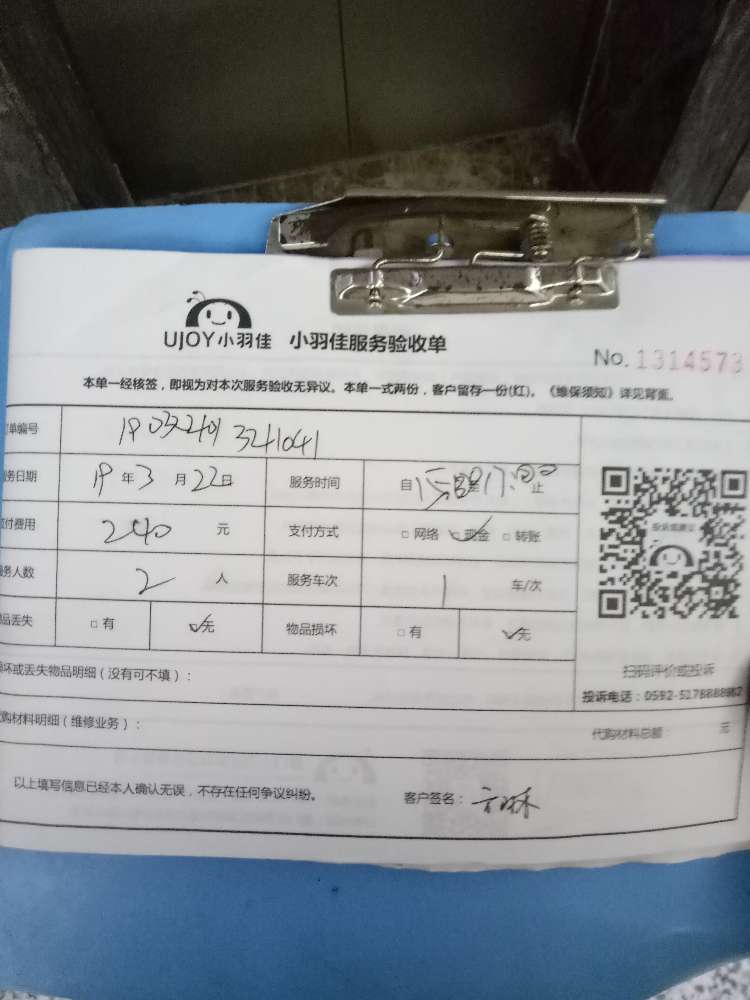 UJOY小羽佳 小羽佳服务验收单
No. 1314573
本单一经核签，即视为对本次服务验收无异议。本单一式两份，客户留存一份(红)。《维保须知》详见背面。
单编号
务日期 19 年 3 月 22 日 服务时间 自 至 17:00 止
付费用 240 元 支付方式 □ 网络 ☑ 现金 □ 转账
务人数 2 人 服务车次 1 车/次
品丢失 □ 有 ☑无 物品损坏 □ 有 ☑无
扫码评价或投诉
投诉电话：0592-5178888
坏或丢失物品明细（没有可不填）：
购材料明细（维修业务）： 代购材料总额： 元
以上填写信息已经本人确认无误，不存在任何争议纠纷。 客户签名：